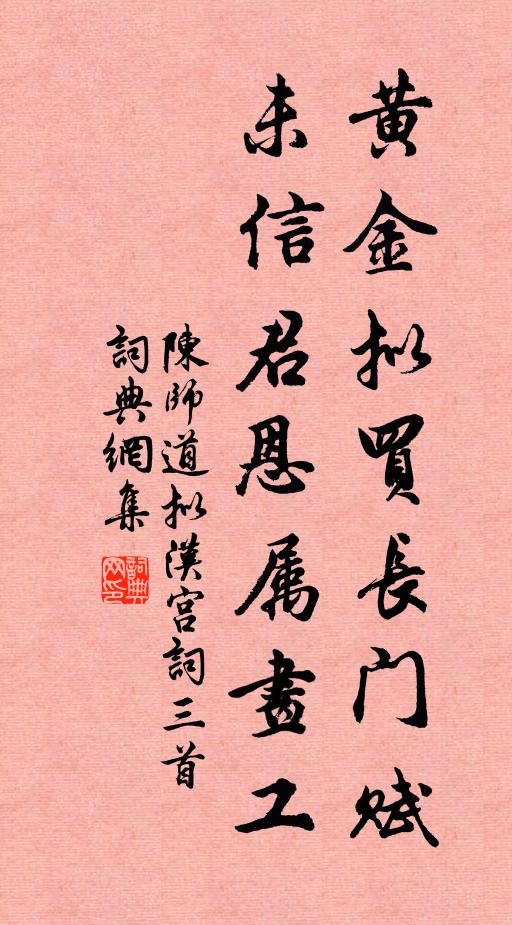 黄金拟買長门赋
未信君恩属畫工
陳師道拟漢宫詞三首
詞典網集
詞典网印